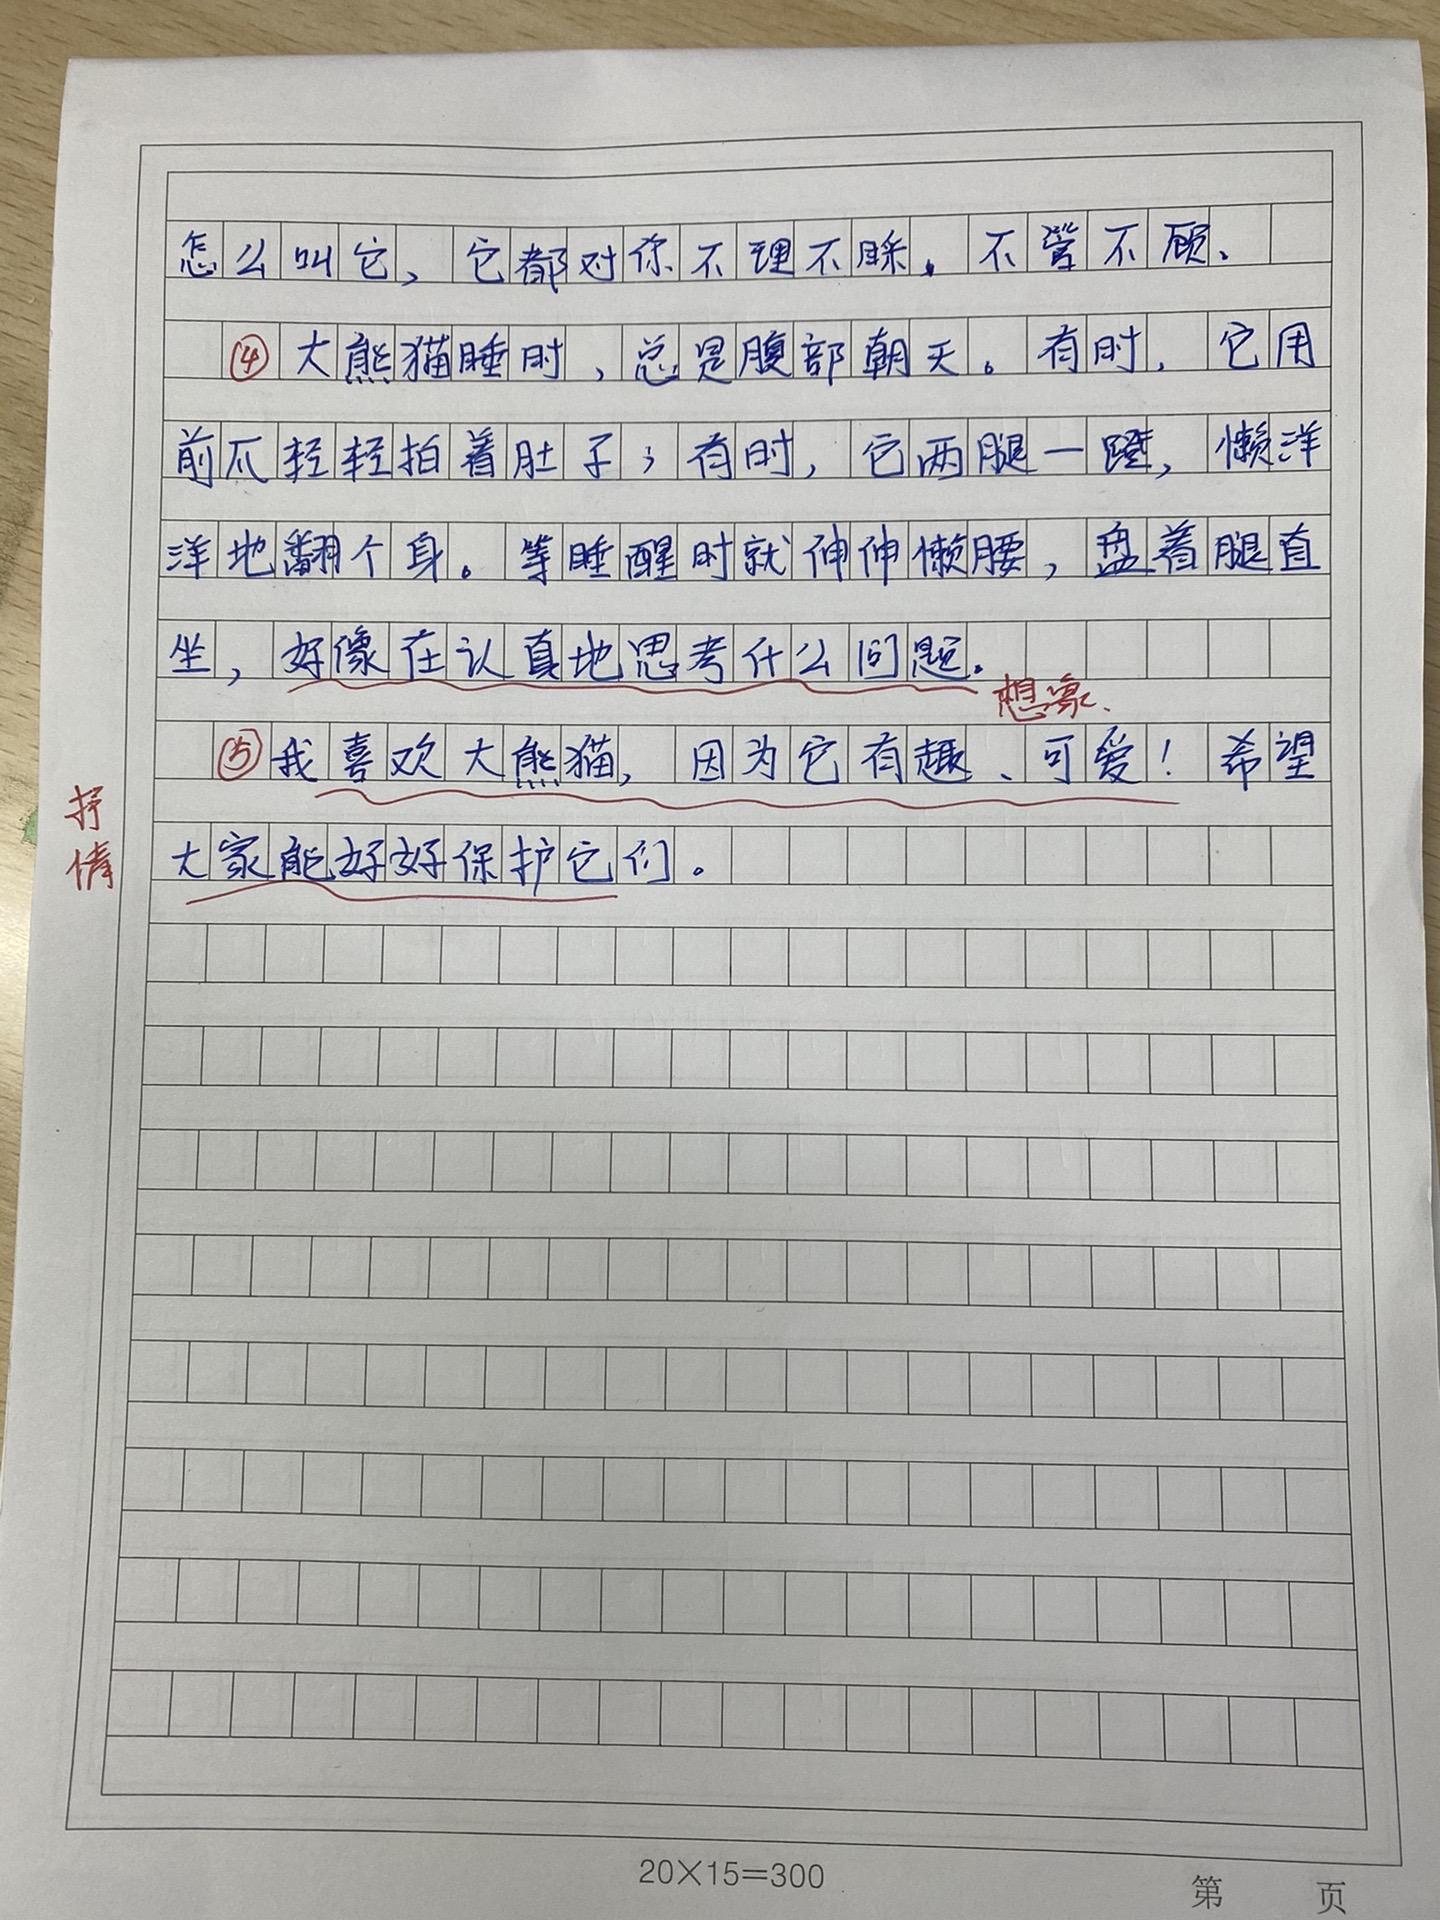 怎么叫它，它都对你不理不睬，不管不顾、
④大熊猫睡时，总是腹部朝天。有时，它用
前爪轻轻拍着肚子；有时，它两腿一蹬，懒洋
洋地翻个身。等睡醒时就伸伸懒腰，盘着腿直
坐，好像在认真地思考什么问题。
想象、
⑤我喜欢大熊猫，因为它有趣、可爱！希望
抒情
大家能好好保护它们。
20×15=300
第 页